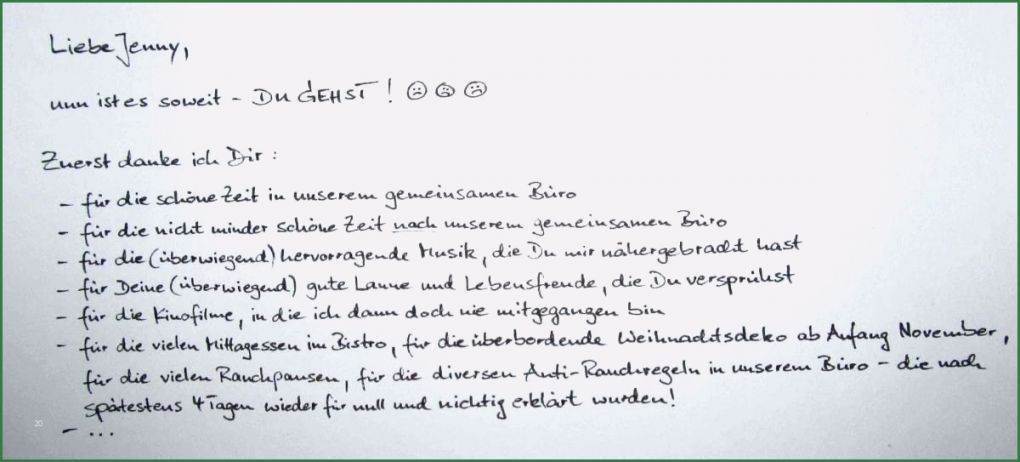 Liebe Jenny,
nun ist es soweit - DU GEHST! ☹ ☹ ☹
Zuerst danke ich Dir:
- für die schöne Zeit in unserem gemeinsamen Büro
- für die nicht minder schöne Zeit nach unserem gemeinsamen Büro
- für die (überwiegend) hervorragende Musik, die Du mir nähergebracht hast
- für Deine (überwiegend) gute Laune und Lebensfreude, die Du versprühst
- für die Kinofilme, in die ich dann doch nie mitgegangen bin
- für die vielen Mittagessen im Bistro, für die überbordende Weihnachtsdeko ab Anfang November,
für die vielen Rauchpausen, für die diversen Anti-Rauchregeln in unserem Büro - die nach
spätestens 4 Tagen wieder für null und nichtig erklärt wurden!
20
- ...